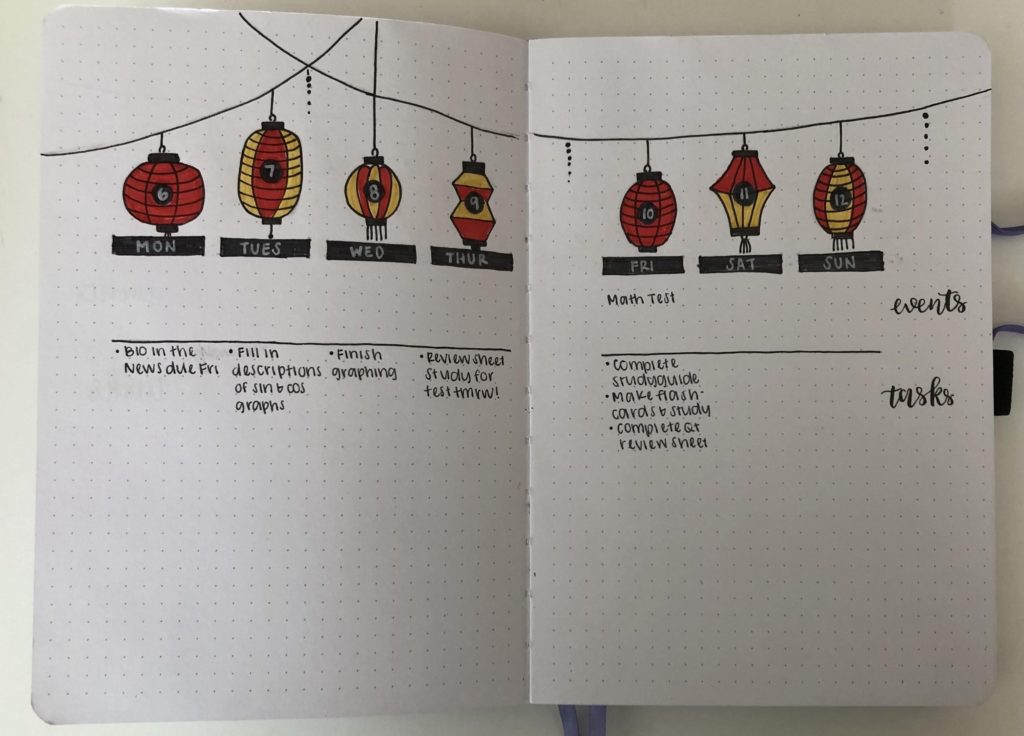 6
7
8
9
MON
TUES
WED
THUR
• BIO in the
News due Fri
• Fill in
descriptions
of sin & cos
graphs
• Finish
graphing
• Review sheet
study for
test tmrw!
10
11
12
FRI
SAT
SUN
Math Test
events
• Complete
studyguide
• Make flash-
cards & study
• Complete Q1
review sheet
tasks